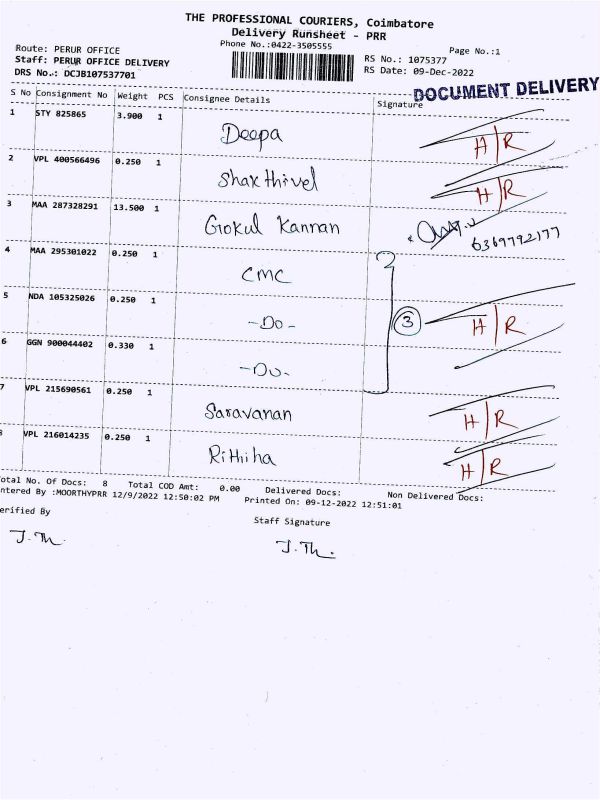 THE PROFESSIONAL COURIERS, Coimbatore
Delivery Runsheet - PRR
Phone No.:0422-3505555
Page No.:1
Route: PERUR OFFICE
RS No.: 1075377
Staff: PERUR OFFICE DELIVERY
RS Date: 09-Dec-2022
DRS No.: DCJB107537701
DOCUMENT DELIVERY
S No Consignment No Weight PCS Consignee Details Signature
1 STY 825865 3.900 1 Deepa H/R
2 VPL 400566496 0.250 1 Shaxthivel H/R
3 MAA 287328291 13.500 1 Gokul Kannan 6369792177
4 MAA 295301022 0.250 1 CMC
5 NDA 105325026 0.250 1 -Do- 3 H/R
6 GGN 900044402 0.330 1 -Do-
7 VPL 215690561 0.250 1 Saravanan H/R
8 VPL 216014235 0.250 1 Rithiha H/R
Total No. Of Docs: 8 Total COD Amt: 0.00 Delivered Docs: Non Delivered Docs:
ntered By :MOORTHYPRR 12/9/2022 12:50:02 PM Printed On: 09-12-2022 12:51:01
erified By Staff Signature
J.Th. J.Th.